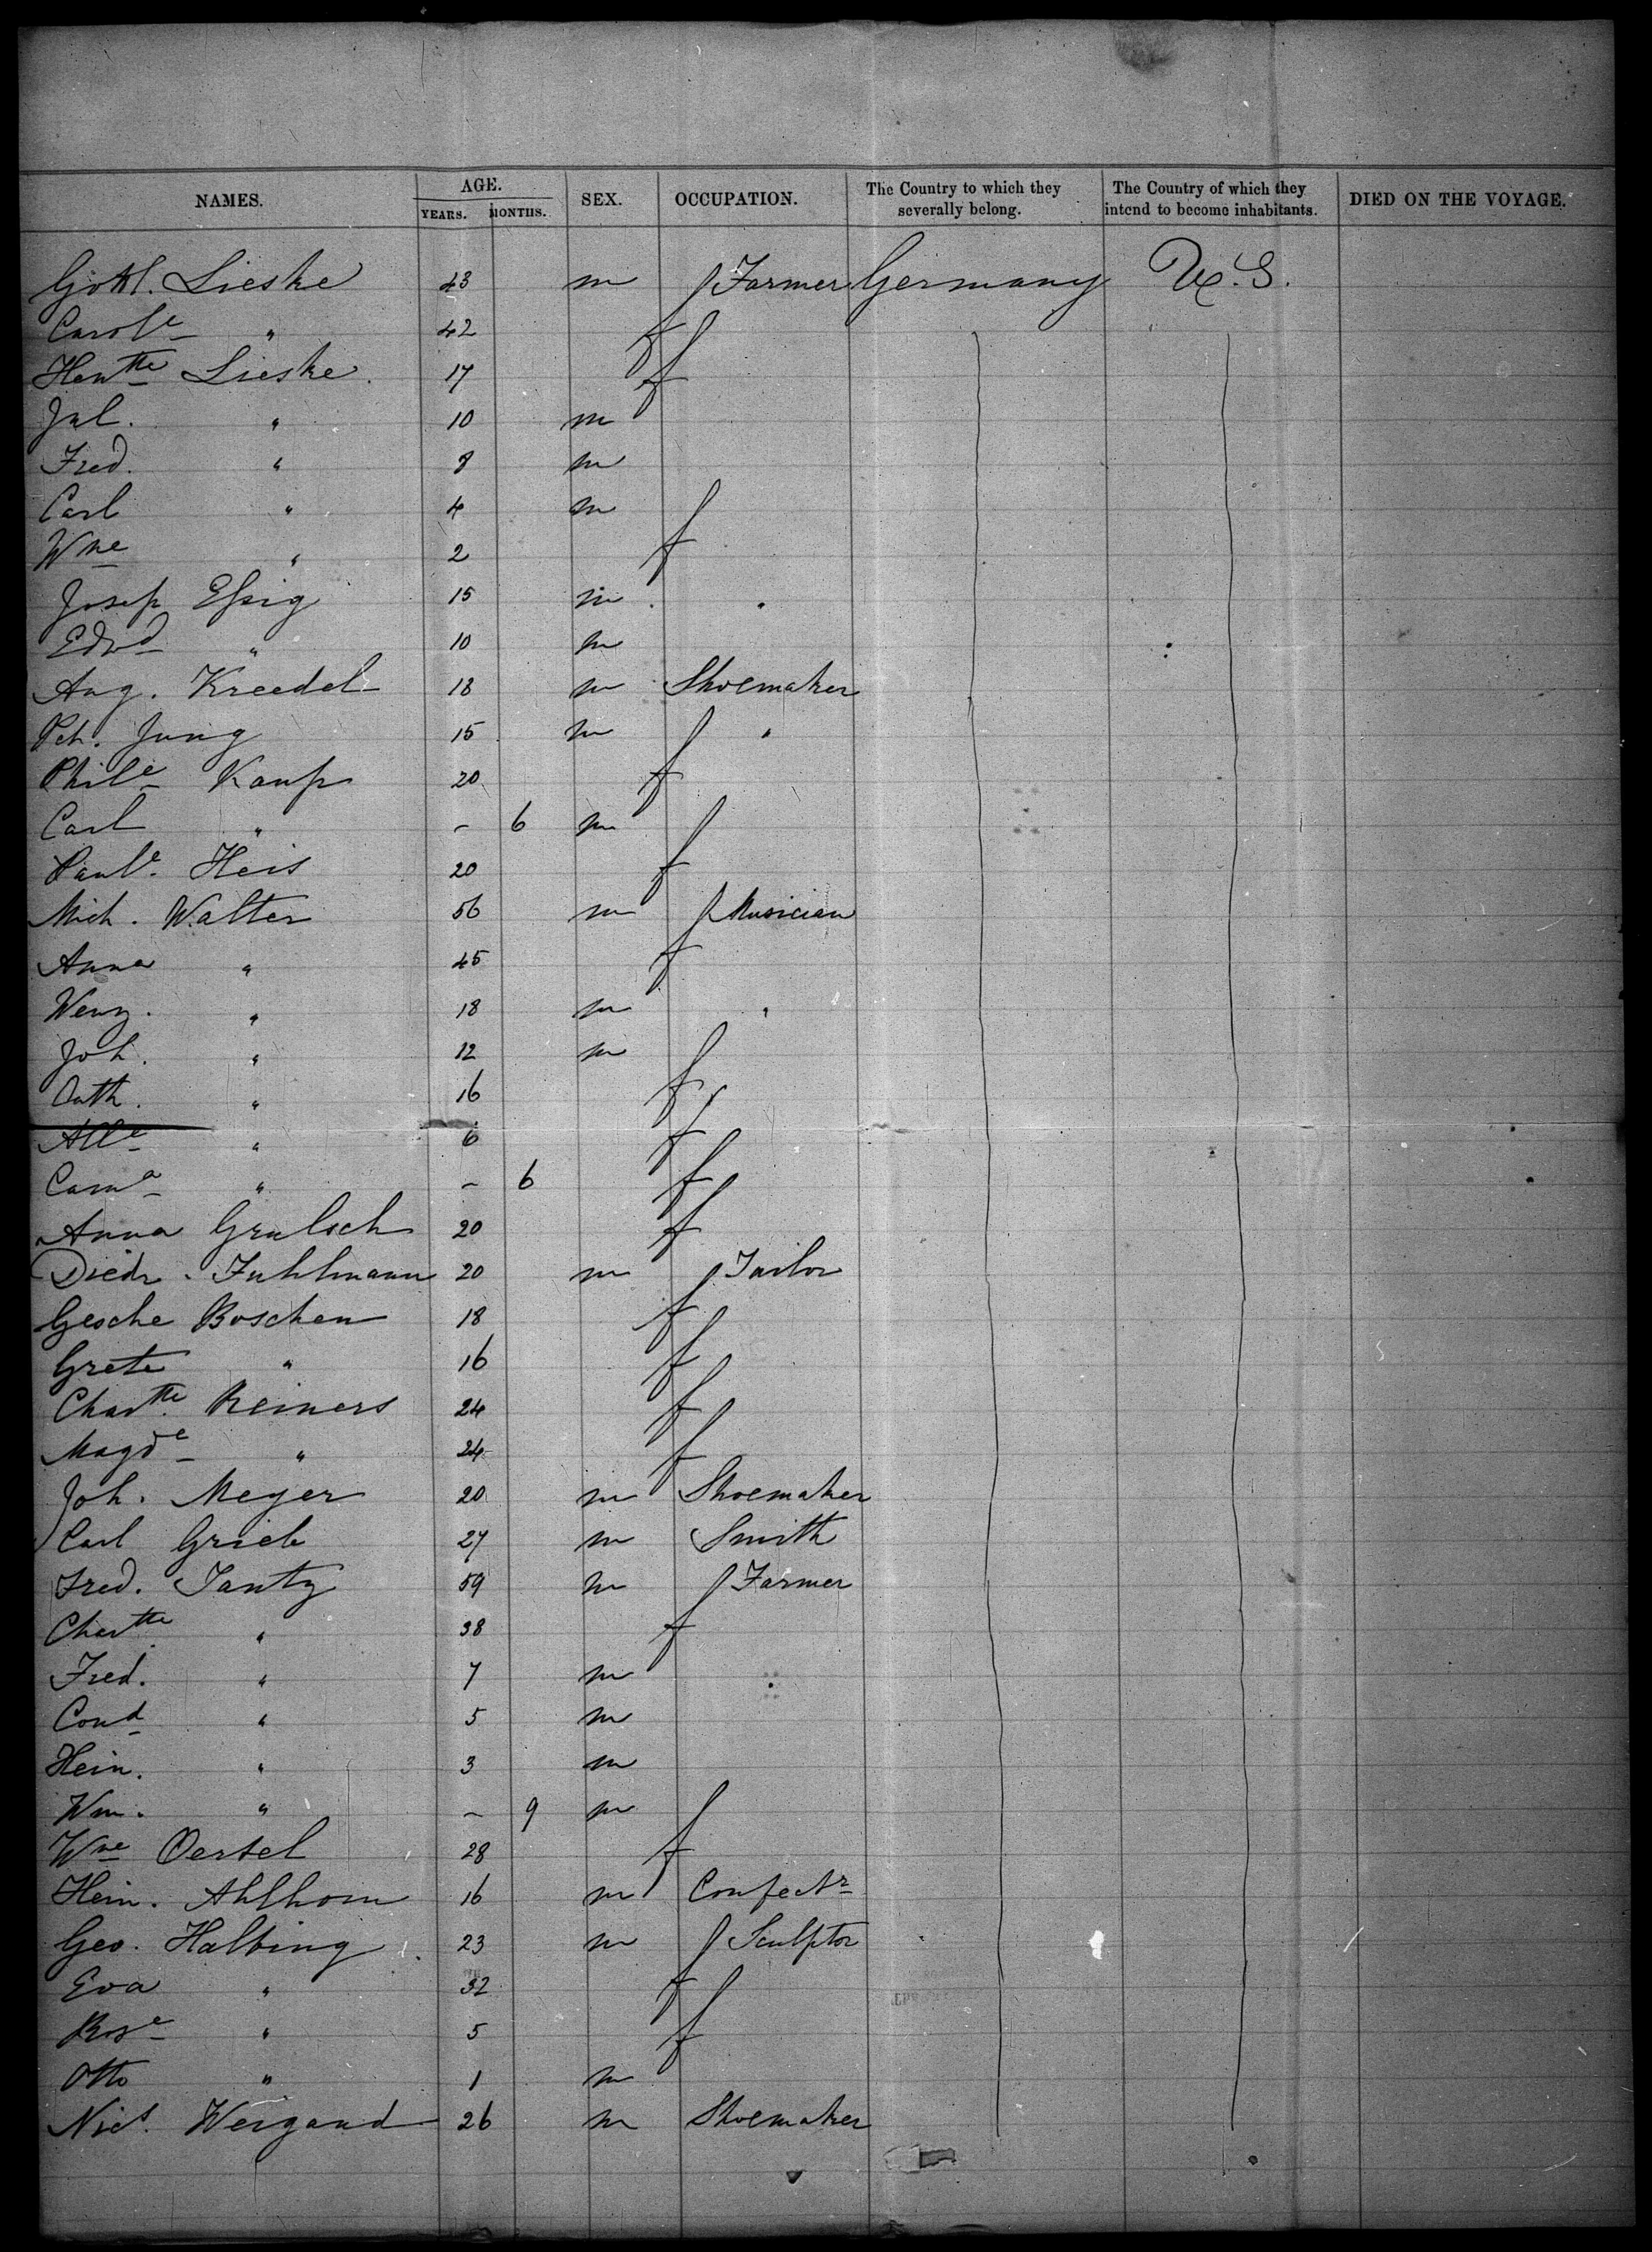 NAMES. AGE. SEX. OCCUPATION. The Country to which they severally belong. The Country of which they intend to become inhabitants. DIED ON THE VOYAGE.
YEARS. MONTHS.
Gottl. Lieske 43 m Farmer Germany U.S.
Carole " 42 f
Hentte Lieske 17 f
Jul. " 10 m
Fred. " 8 m
Carl " 4 m
Wne " 2 f
Josep Eßig 15 m "
Edwd " 10 m
Aug. Kreedel 18 m Shoemaker
Pet. Jung 15 m "
Phile Kaup 20 f
Carl " - 6 m
Paule Heis 20 f
Mich. Walter 56 m Musician
Anna " 45 f
Wenz. " 18 m "
Joh. " 12 m
Cath. " 16 f
Alle " 6 f
Cama " - 6 f
Anna Grulsch 20 f
Diedr. Fuhlmann 20 m Tailor
Gesche Boschen 18 f
Grete " 16 f
Chartte Reiners 24 f
Magde " 24 f
Joh. Meyer 20 m Shoemaker
Carl Grieb 27 m Smith
Fred. Jantz 59 m Farmer
Chartte " 38 f
Fred. " 7 m
Cond " 5 m
Hein. " 3 m
Wm. " - 9 m
Wne Oertel 28 f
Hein. Ahlhorn 16 m Confectr
Geo. Halbing 23 m Sculptor
Eva " 32 f
Rose " 5 f
Otto " 1 m
Nicl. Weigand 26 m Shoemaker